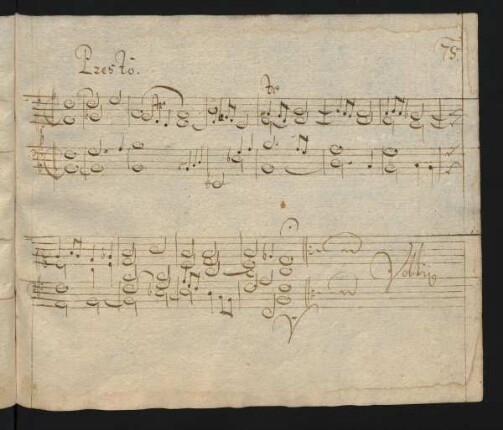 Presto.
75.
tr
tr
Volti